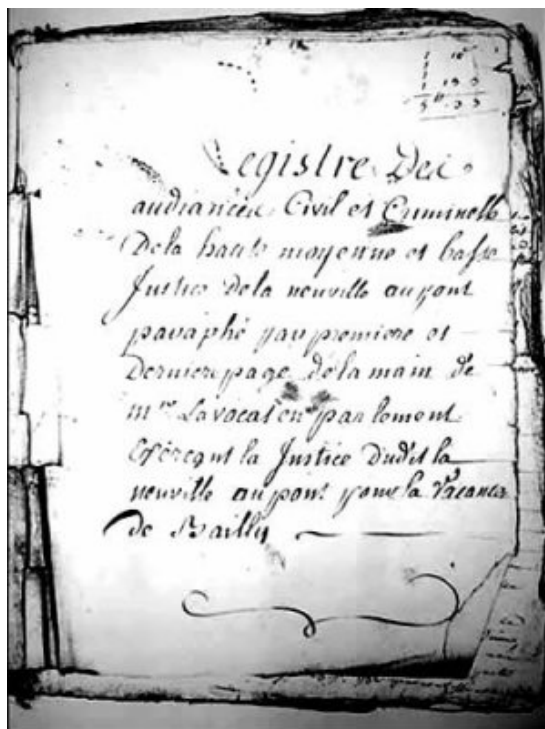 Registre Des
audiances Civil et Criminell
Dela haute moyenne et basse
Justice Dela neuville au pont
paraphé par premiere et
Derniere page de la main de
Mre Lavocat en parlement
Exerçant la Justice Dudit la
neuville au pont pour la Vacance
de Bailly